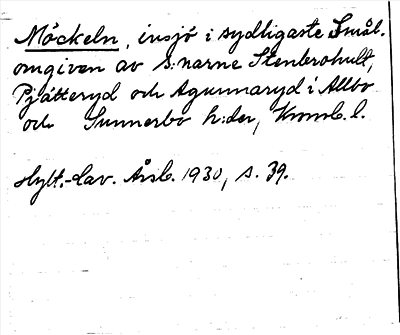 Möckeln, insjö i sydligaste Smål.
omgiven av s:narne Stenbrohult,
Pjätteryd och Agunnaryd i Allbo
och Sunnerbo h:der, Kronob. l.
Hylt.-Cav. Årsb. 1930, s. 39.